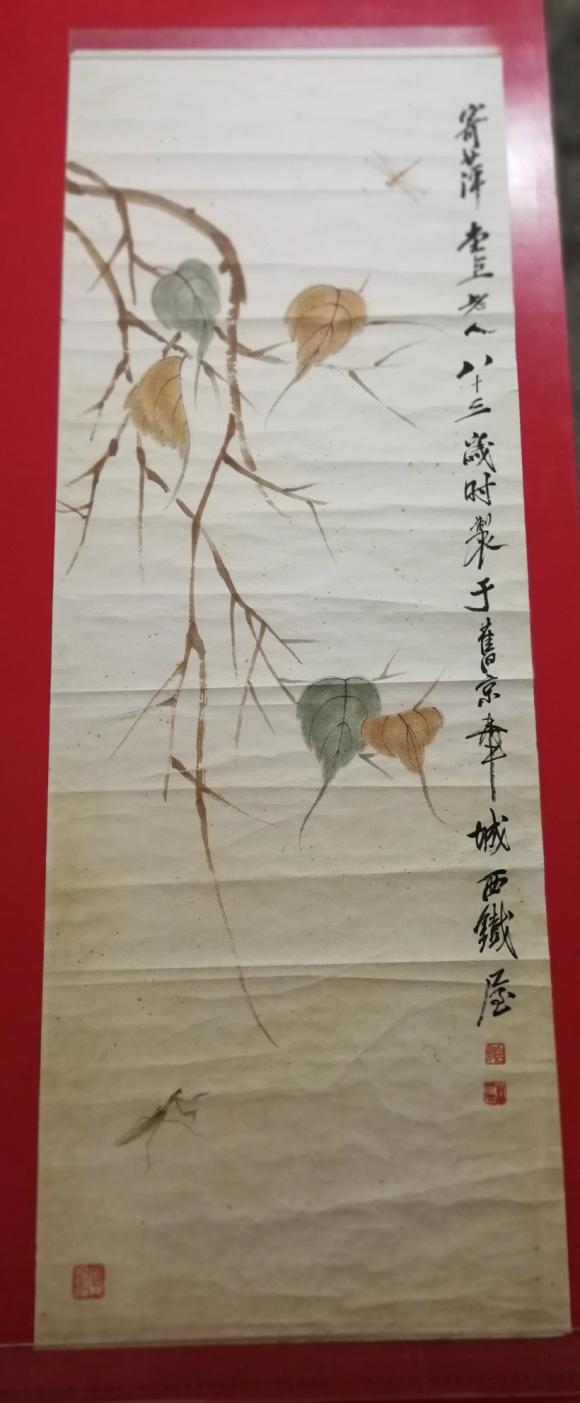 寄萍堂上老人八十三歲時製于舊京華城西鐵屋